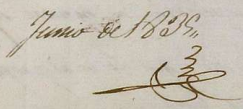 Junio de 1838,,